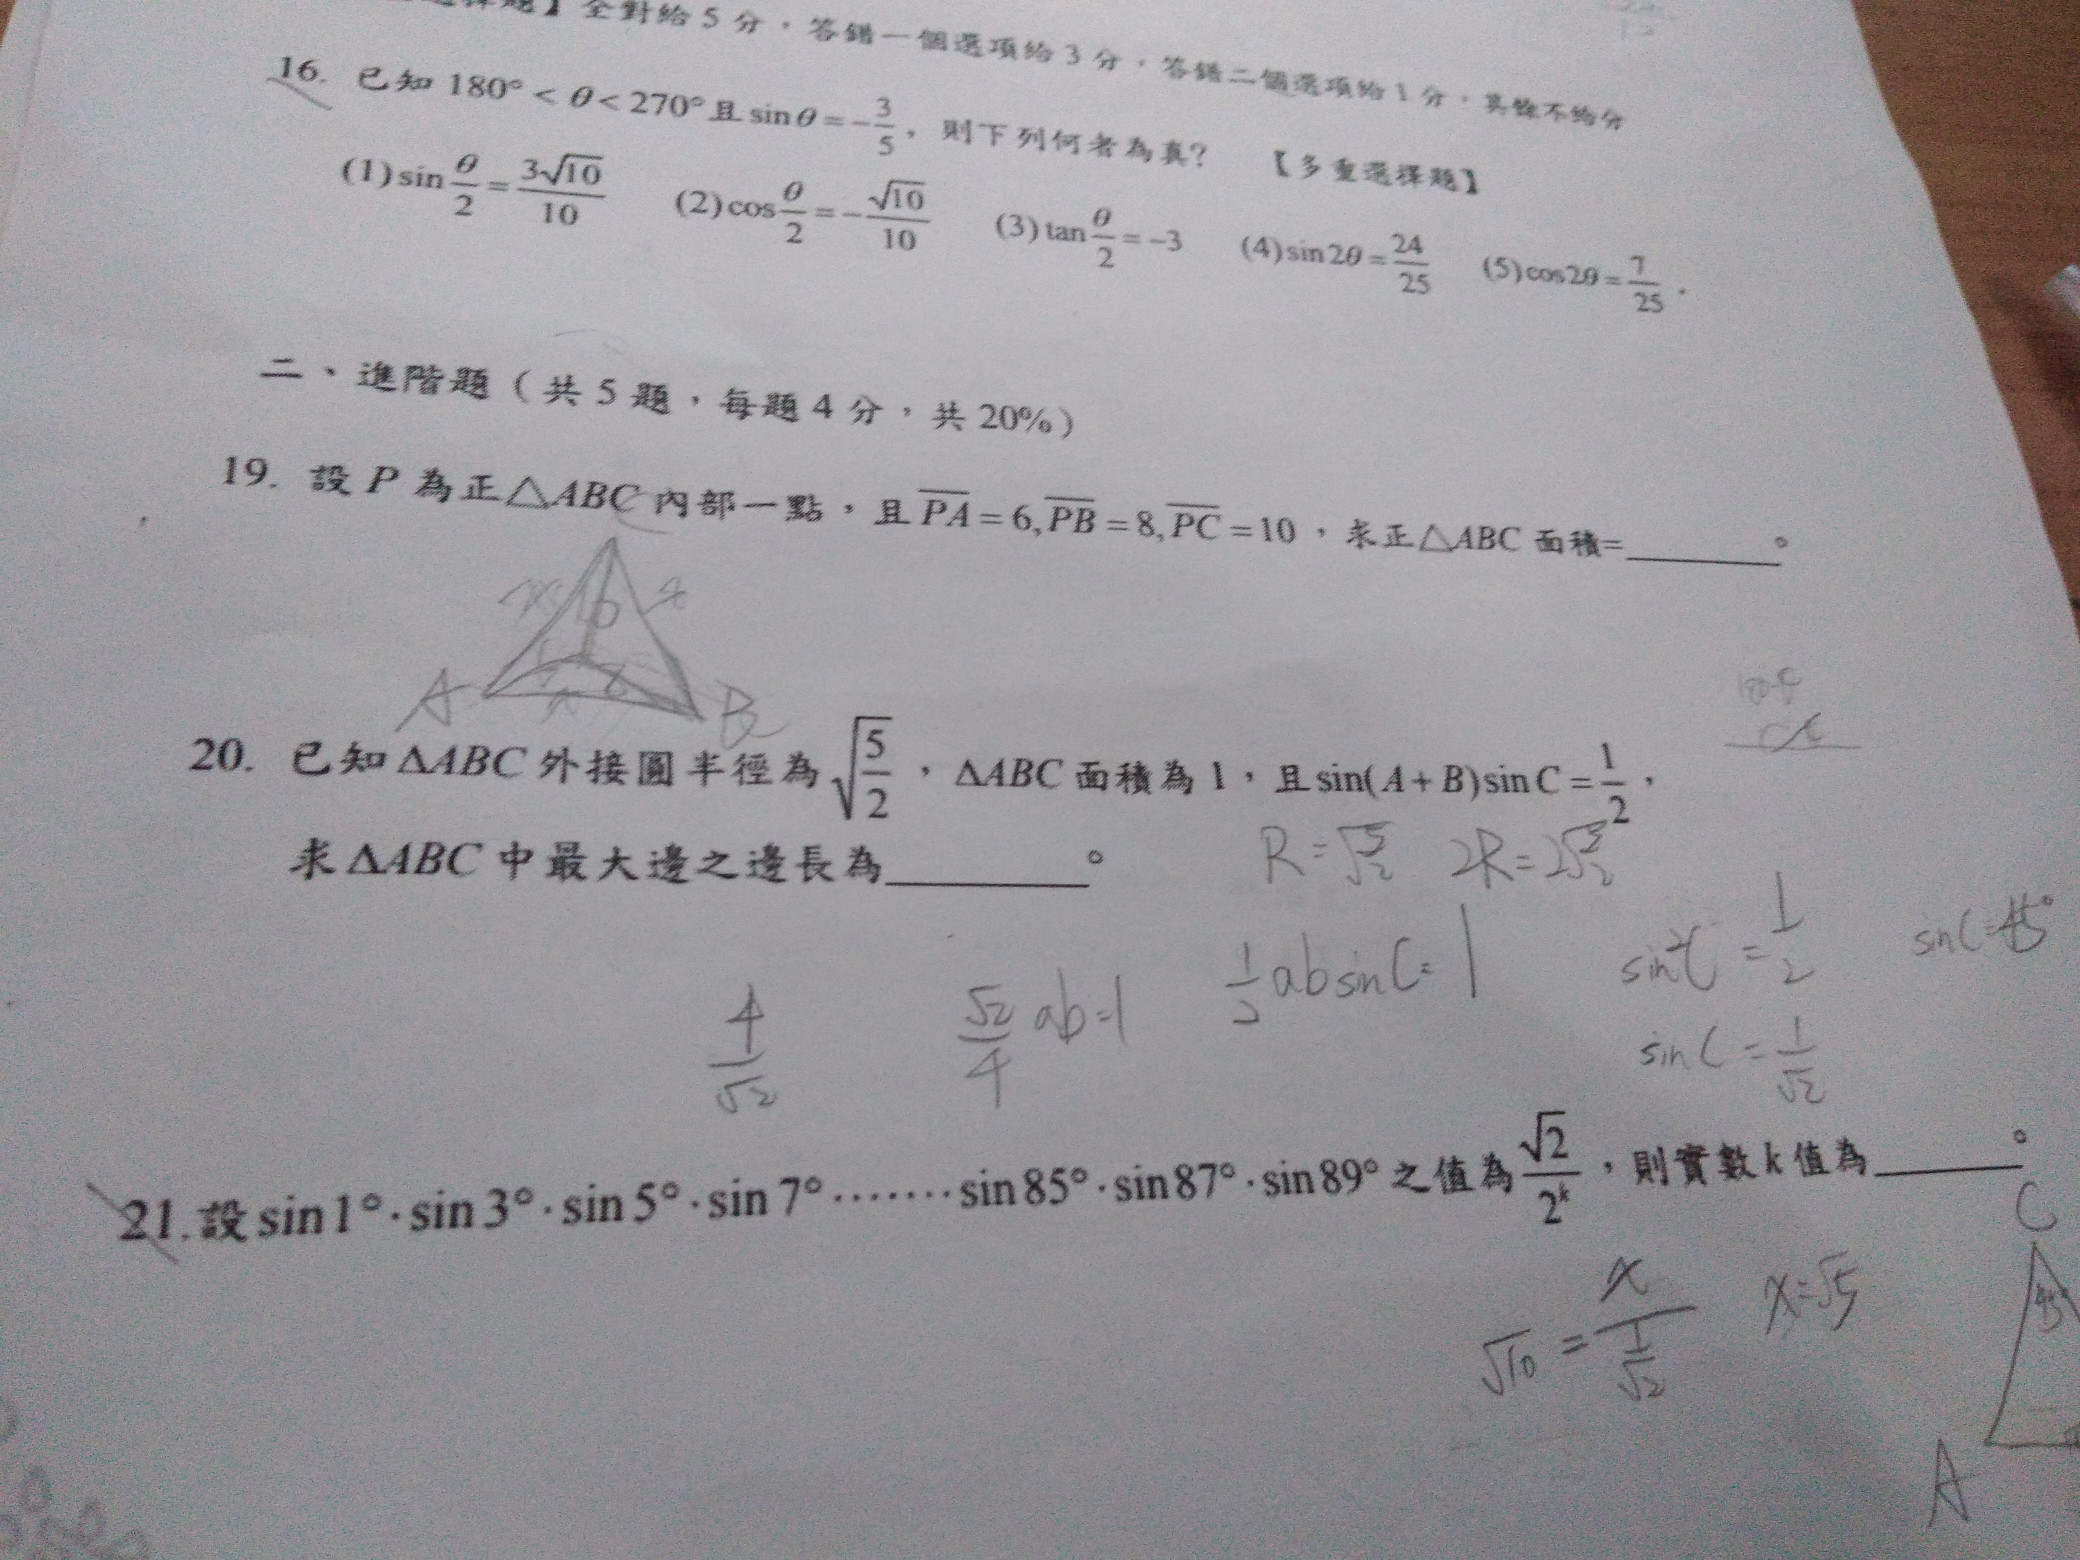 全對給 5 分，答錯一個選項給 3 分，答錯二個選項給 1 分，其餘不給分
16. 已知 180° < θ < 270° 且 sinθ = -3/5，則下列何者為真？ 【多重選擇題】
(1) sin θ/2 = 3√10/10 (2) cos θ/2 = -√10/10 (3) tan θ/2 = -3 (4) sin2θ = 24/25 (5) cos2θ = 7/25 .
二、進階題（共 5 題，每題 4 分，共 20%）
19. 設 P 為正△ABC 內部一點，且 PA = 6, PB = 8, PC = 10，求正△ABC 面積=______。
10
A
B
20. 已知 ΔABC 外接圓半徑為 √(5/2)，ΔABC 面積為 1，且 sin(A+B)sinC = 1/2，
求 ΔABC 中最大邊之邊長為______。
R = √(5/2) 2R = 2√(5/2)
4/√2 √2/4 ab = 1 1/2 ab sin C = 1 sin²C = 1/2 sin C = 45°
sin C = 1/√2
21. 設 sin1°·sin3°·sin5°·sin7°·······sin85°·sin87°·sin89° 之值為 √2/2^k，則實數 k 值為______。
√10 = x/(1/√2) x = √5
C
45°
A